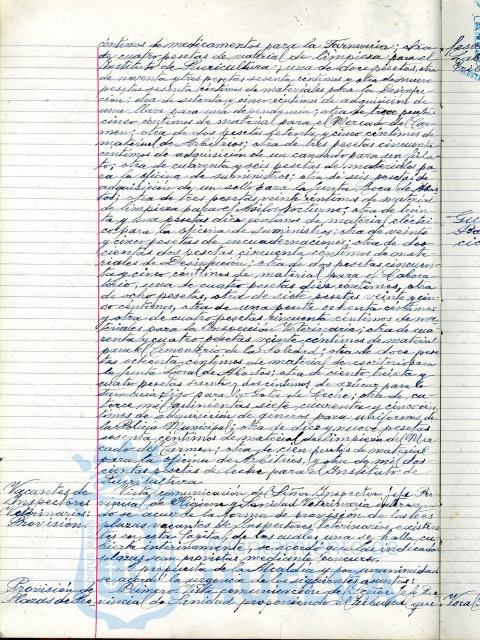 céntimos de medicamentos para la Farmacia; otra
de pesetas de material de limpieza para el
Instituto de Puericultura; una de doce pesetas, otra
de noventa y tres pesetas sesenta céntimos y otra de nueve
pesetas sesenta céntimos de materiales para la Desinfec-
ción; otra de setenta y cinco céntimos de adquisición de
una llave para una dependencia; otra de trece pesetas
cinco céntimos de material para el Mercado del Car-
men; otra de dos pesetas setenta y cinco céntimos de
material de Arbitrios; otra de tres pesetas cincuenta
céntimos de adquisición de un candado para un
otra de cuarenta y seis pesetas de materiales pa-
ra la oficina de suministros; otra de seis pesetas de
adquisición de un sello para la Junta Local de Abas-
tos; otra de tres pesetas veinte céntimos de material
de limpieza para el Asilo Nocturno; otra de trein-
ta y una pesetas diez céntimos de material eléctri-
co para la oficina de suministros; otra de veinte
y cinco pesetas de encuadernaciones; otra de dos-
cientas diez pesetas cincuenta céntimos de mate-
riales de Desinfección; otra de dos pesetas cincuen-
ta y cinco céntimos de material para el Labora-
torio, una de cuatro pesetas diez céntimos, otra
de ocho pesetas, otra de siete pesetas veinte y cin-
co céntimos, otra de una peseta ochenta céntimos
y otra de cuatro pesetas cincuenta céntimos de ma-
teriales para la Inspección Veterinaria; otra de cua-
renta y cuatro pesetas veinte céntimos de material
para el Cementerio de la Soledad; otra de doce pese-
tas ochenta céntimos de material de escritorio para
la Junta Local de Abastos; otra de ciento treinta y
cuatro pesetas treinta y dos céntimos de azúcar para la
Farmacia, digo para la Gota de Leche; otra de ca-
torce mil quinientas siete cuarenta y cinco cén-
timos de adquisición de géneros para uniformes de
la Policía Municipal; otra de diez y nueve pesetas
sesenta céntimos de material de limpieza del Mer-
cado del Carmen; otra de cien pesetas de material
para la oficina de Edificios, y otra de mil dos-
cientas pesetas de leche para el Instituto de
Puericultura.
Vacantes de Vista comunicación del Señor Inspector Jefe Pro-
Inspectores vincial de Higiene y Sanidad Veterinaria, interesan-
Veterinarios: do se acuerde la forma de provisión de las dos
Provisión. plazas vacantes de Inspectores Veterinarios, existen-
tes en esta Capital, de las cuales una se halla cu-
bierta interinamente, se acordó que las indicadas
plazas sean provistas mediante concurso.
A propuesta de la Alcaldía y por unanimidad
se acordó la urgencia de los siguientes asuntos:
Provisión de Primero. Vista comunicación del Señor Jefe Pro-
Plazas de vincial de Sanidad proponiendo a que